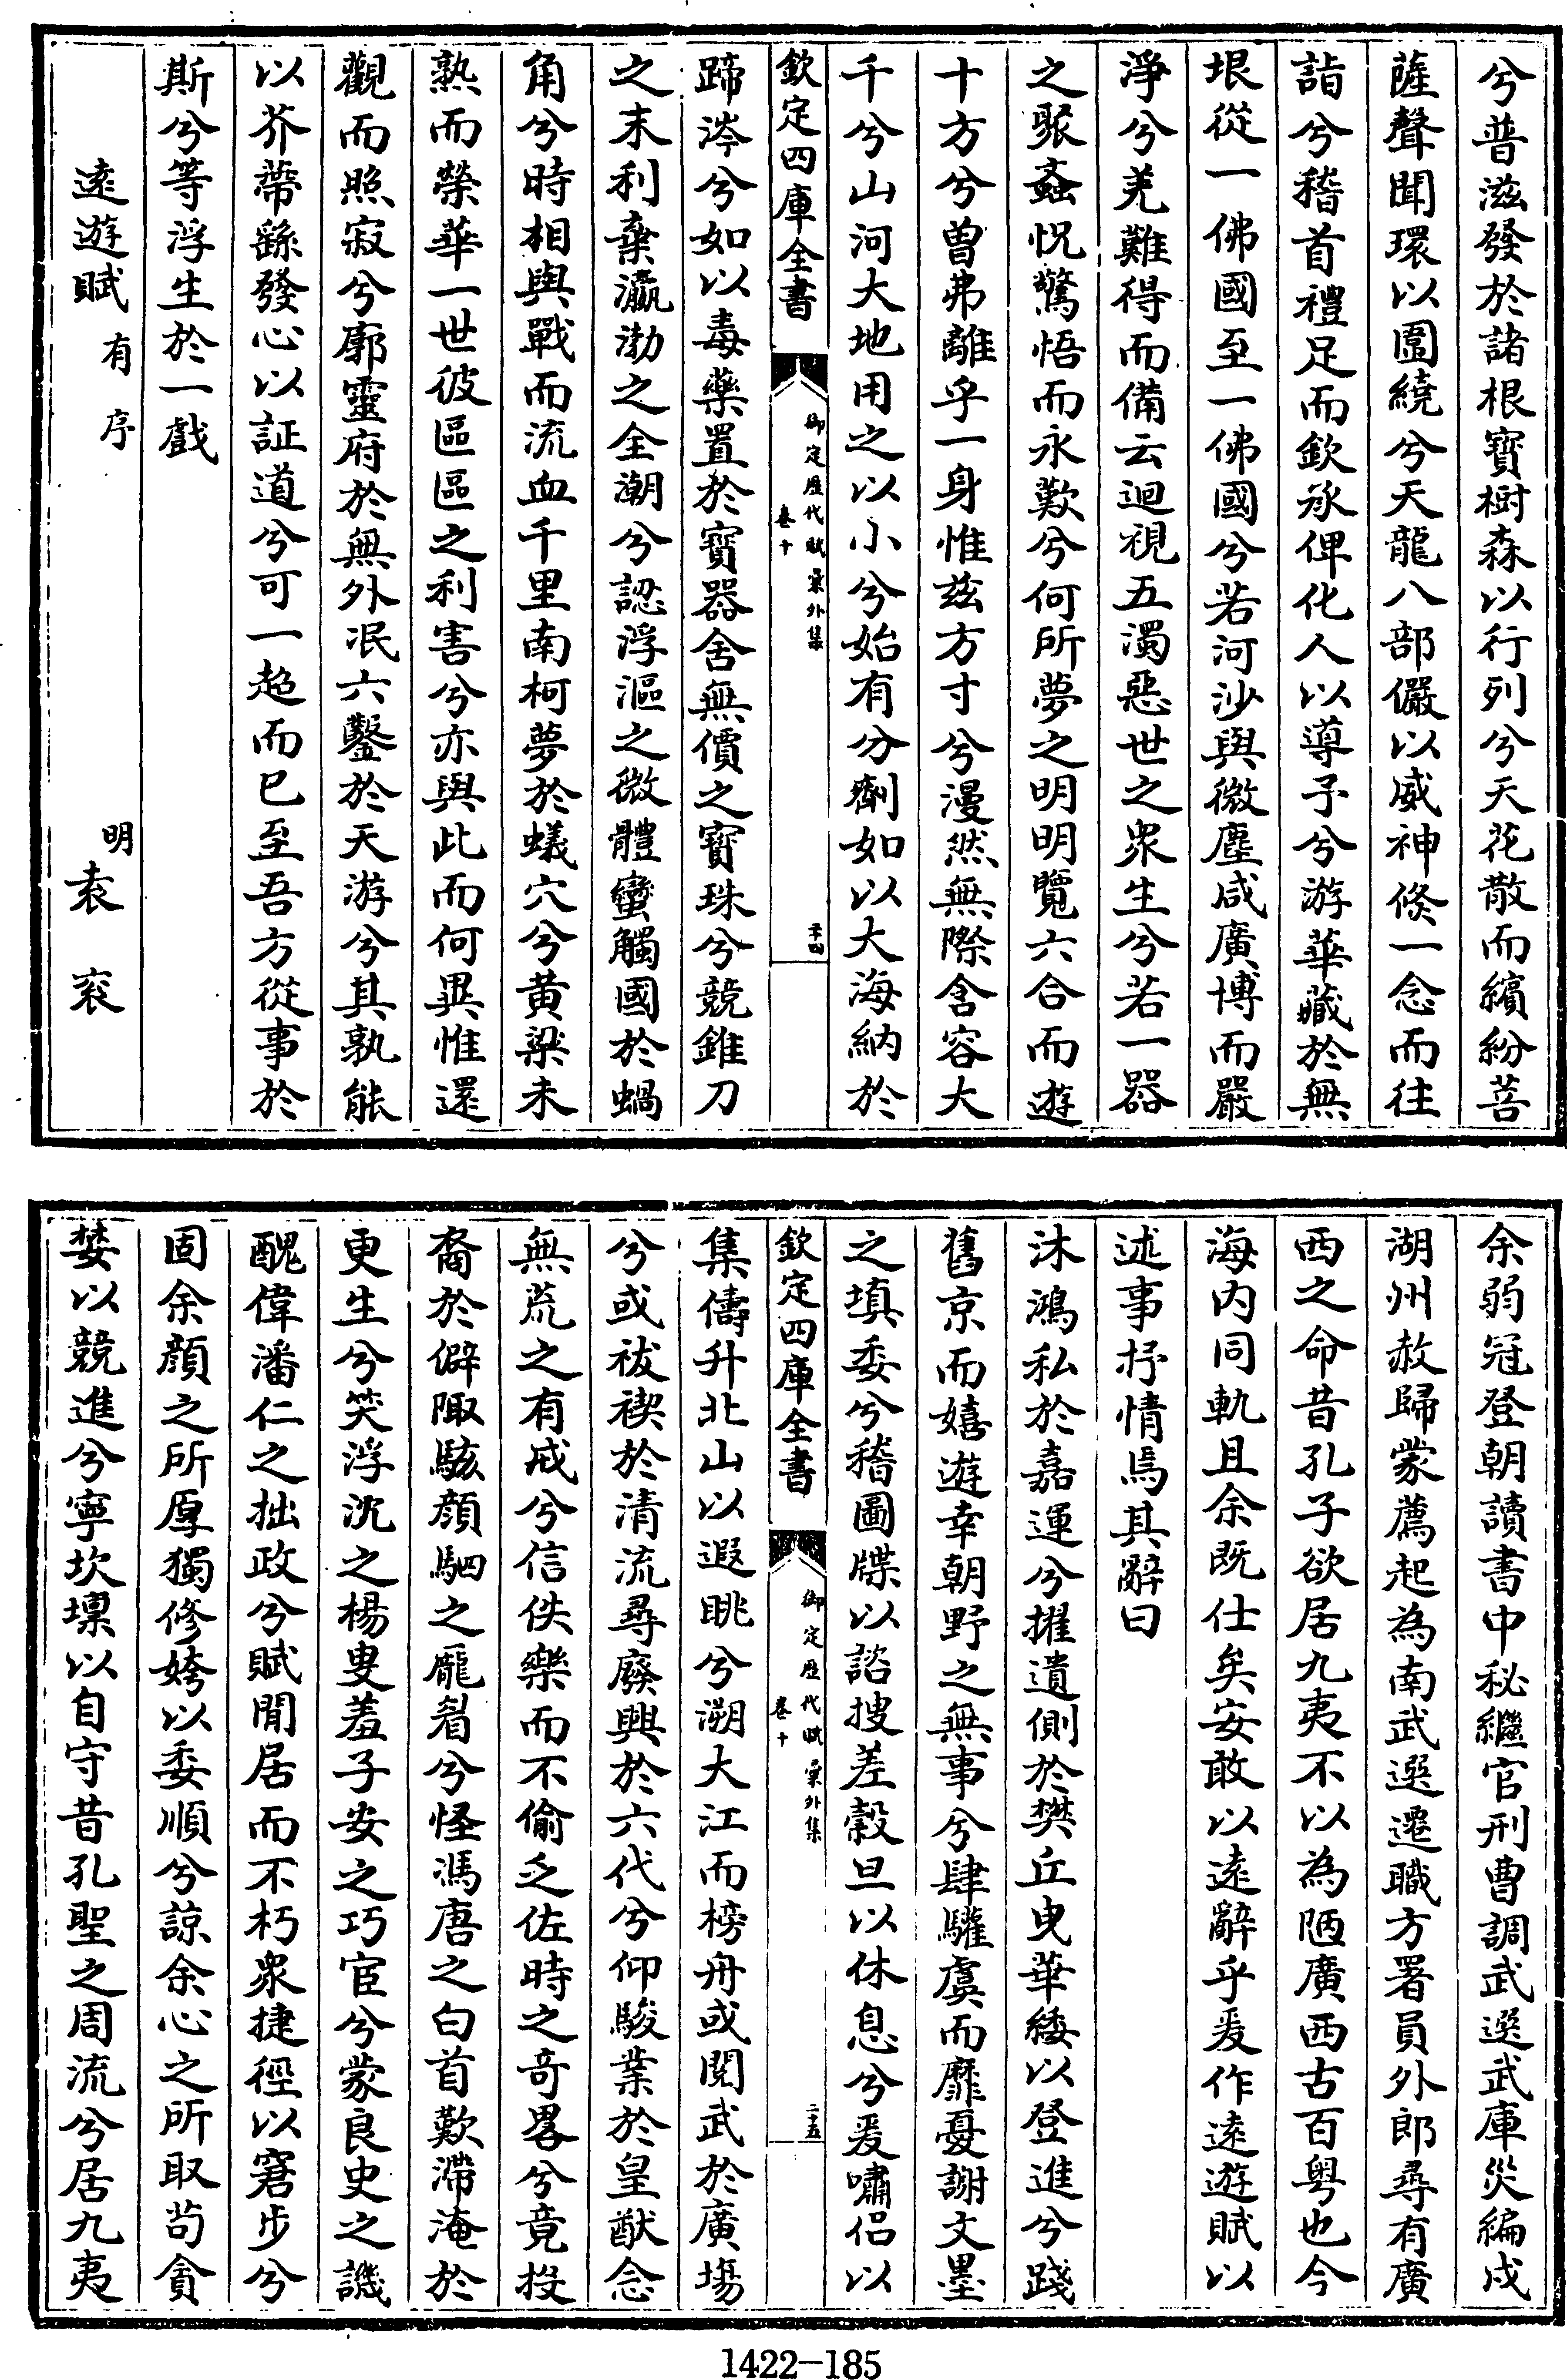 兮普滋發於諸根寶樹森以行列兮天花散而繽紛菩
薩聲聞環以圍繞兮天龍八部儼以威神倐一念而往
詣兮稽首禮足而欽承俾化人以導予兮游華藏於無
垠從一佛國至一佛國兮若河沙與微塵咸廣博而嚴
淨兮羌難得而備云迴視五濁惡世之衆生兮若一器
之聚蝱怳驚悟而永歎兮何所夢之明明覽六合而遊
十方兮曽弗離乎一身惟兹方寸兮漫然無際含容大
千兮山河大地用之以小兮始有分劑如以大海納於
欽定四庫全書
御定歴代賦彙外集
卷十
二十四
蹄涔兮如以毒藥置於寳器舍無價之寶珠兮競錐刀
之末利棄瀛渤之全潮兮認浮漚之微體蠻觸國於蝸
角兮時相與戰而流血千里南柯夢於蟻穴兮黄粱未
熟而榮華一世彼區區之利害兮亦與此而何異惟還
觀而照寂兮廓靈府於無外冺六鑿於天游兮其孰能
以芥蔕繇發心以証道兮可一超而已至吾方從事於
斯兮等浮生於一戲
逺遊賦有序
明袁袠
余弱冠登朝讀書中秘繼官刑曹調武選武庫災編戍
湖州赦歸蒙薦起為南武選遷職方署員外郎尋有廣
西之命昔孔子欲居九夷不以為陋廣西古百粤也今
海内同軌且余既仕矣安敢以逺辭乎爰作逺遊賦以
述事抒情焉其辭曰
沐鴻私於嘉運兮擢遺側於樊丘曳華緌以登進兮踐
舊京而嬉遊幸朝野之無事兮肆驩虞而靡憂謝文墨
之填委兮稽圖牒以諮搜差榖旦以休息兮爰嘯侣以
欽定四庫全書
御定歴代賦彙外集
卷十
二十五
集儔升北山以遐眺兮溯大江而榜舟或閲武於廣場
兮或祓禊於清流尋廢興於六代兮仰駿業於皇猷念
無荒之有戒兮信佚樂而不偷乏佐時之奇畧兮竟投
裔於僻陬駭顔駟之厖眉兮怪馮唐之白首歎滯淹於
更生兮笑浮沉之楊叟羞子安之巧宦兮蒙良史之譏
醜偉潘仁之拙政兮賦閒居而不朽衆捷徑以窘步兮
固余顔之所厚獨修姱以委順兮諒余心之所取茍貪
婪以競進兮寧坎壈以自守昔孔聖之周流兮居九夷
1422—185